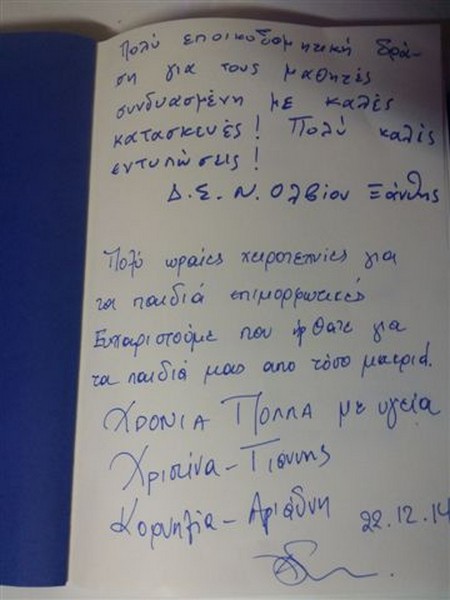 Πολύ εποικοδομητική δρά-
ση για τους μαθητές
συνδυασμένη με καλές
κατασκευές! Πολύ καλές
εντυπώσεις!
Δ.Σ. Ν. Ολβίου Ξάνθης
Πολύ ωραίες χειροτεχνίες για
τα παιδιά επιμορφωτικές
Ευχαριστούμε που ήρθατε για
τα παιδιά μας απο τόσο μακριά.
ΧΡΟΝΙΑ ΠΟΛΛΑ με υγεία
Χριστίνα - Γιάννης
Κορνηλία - Αριάδνη 22.12.14